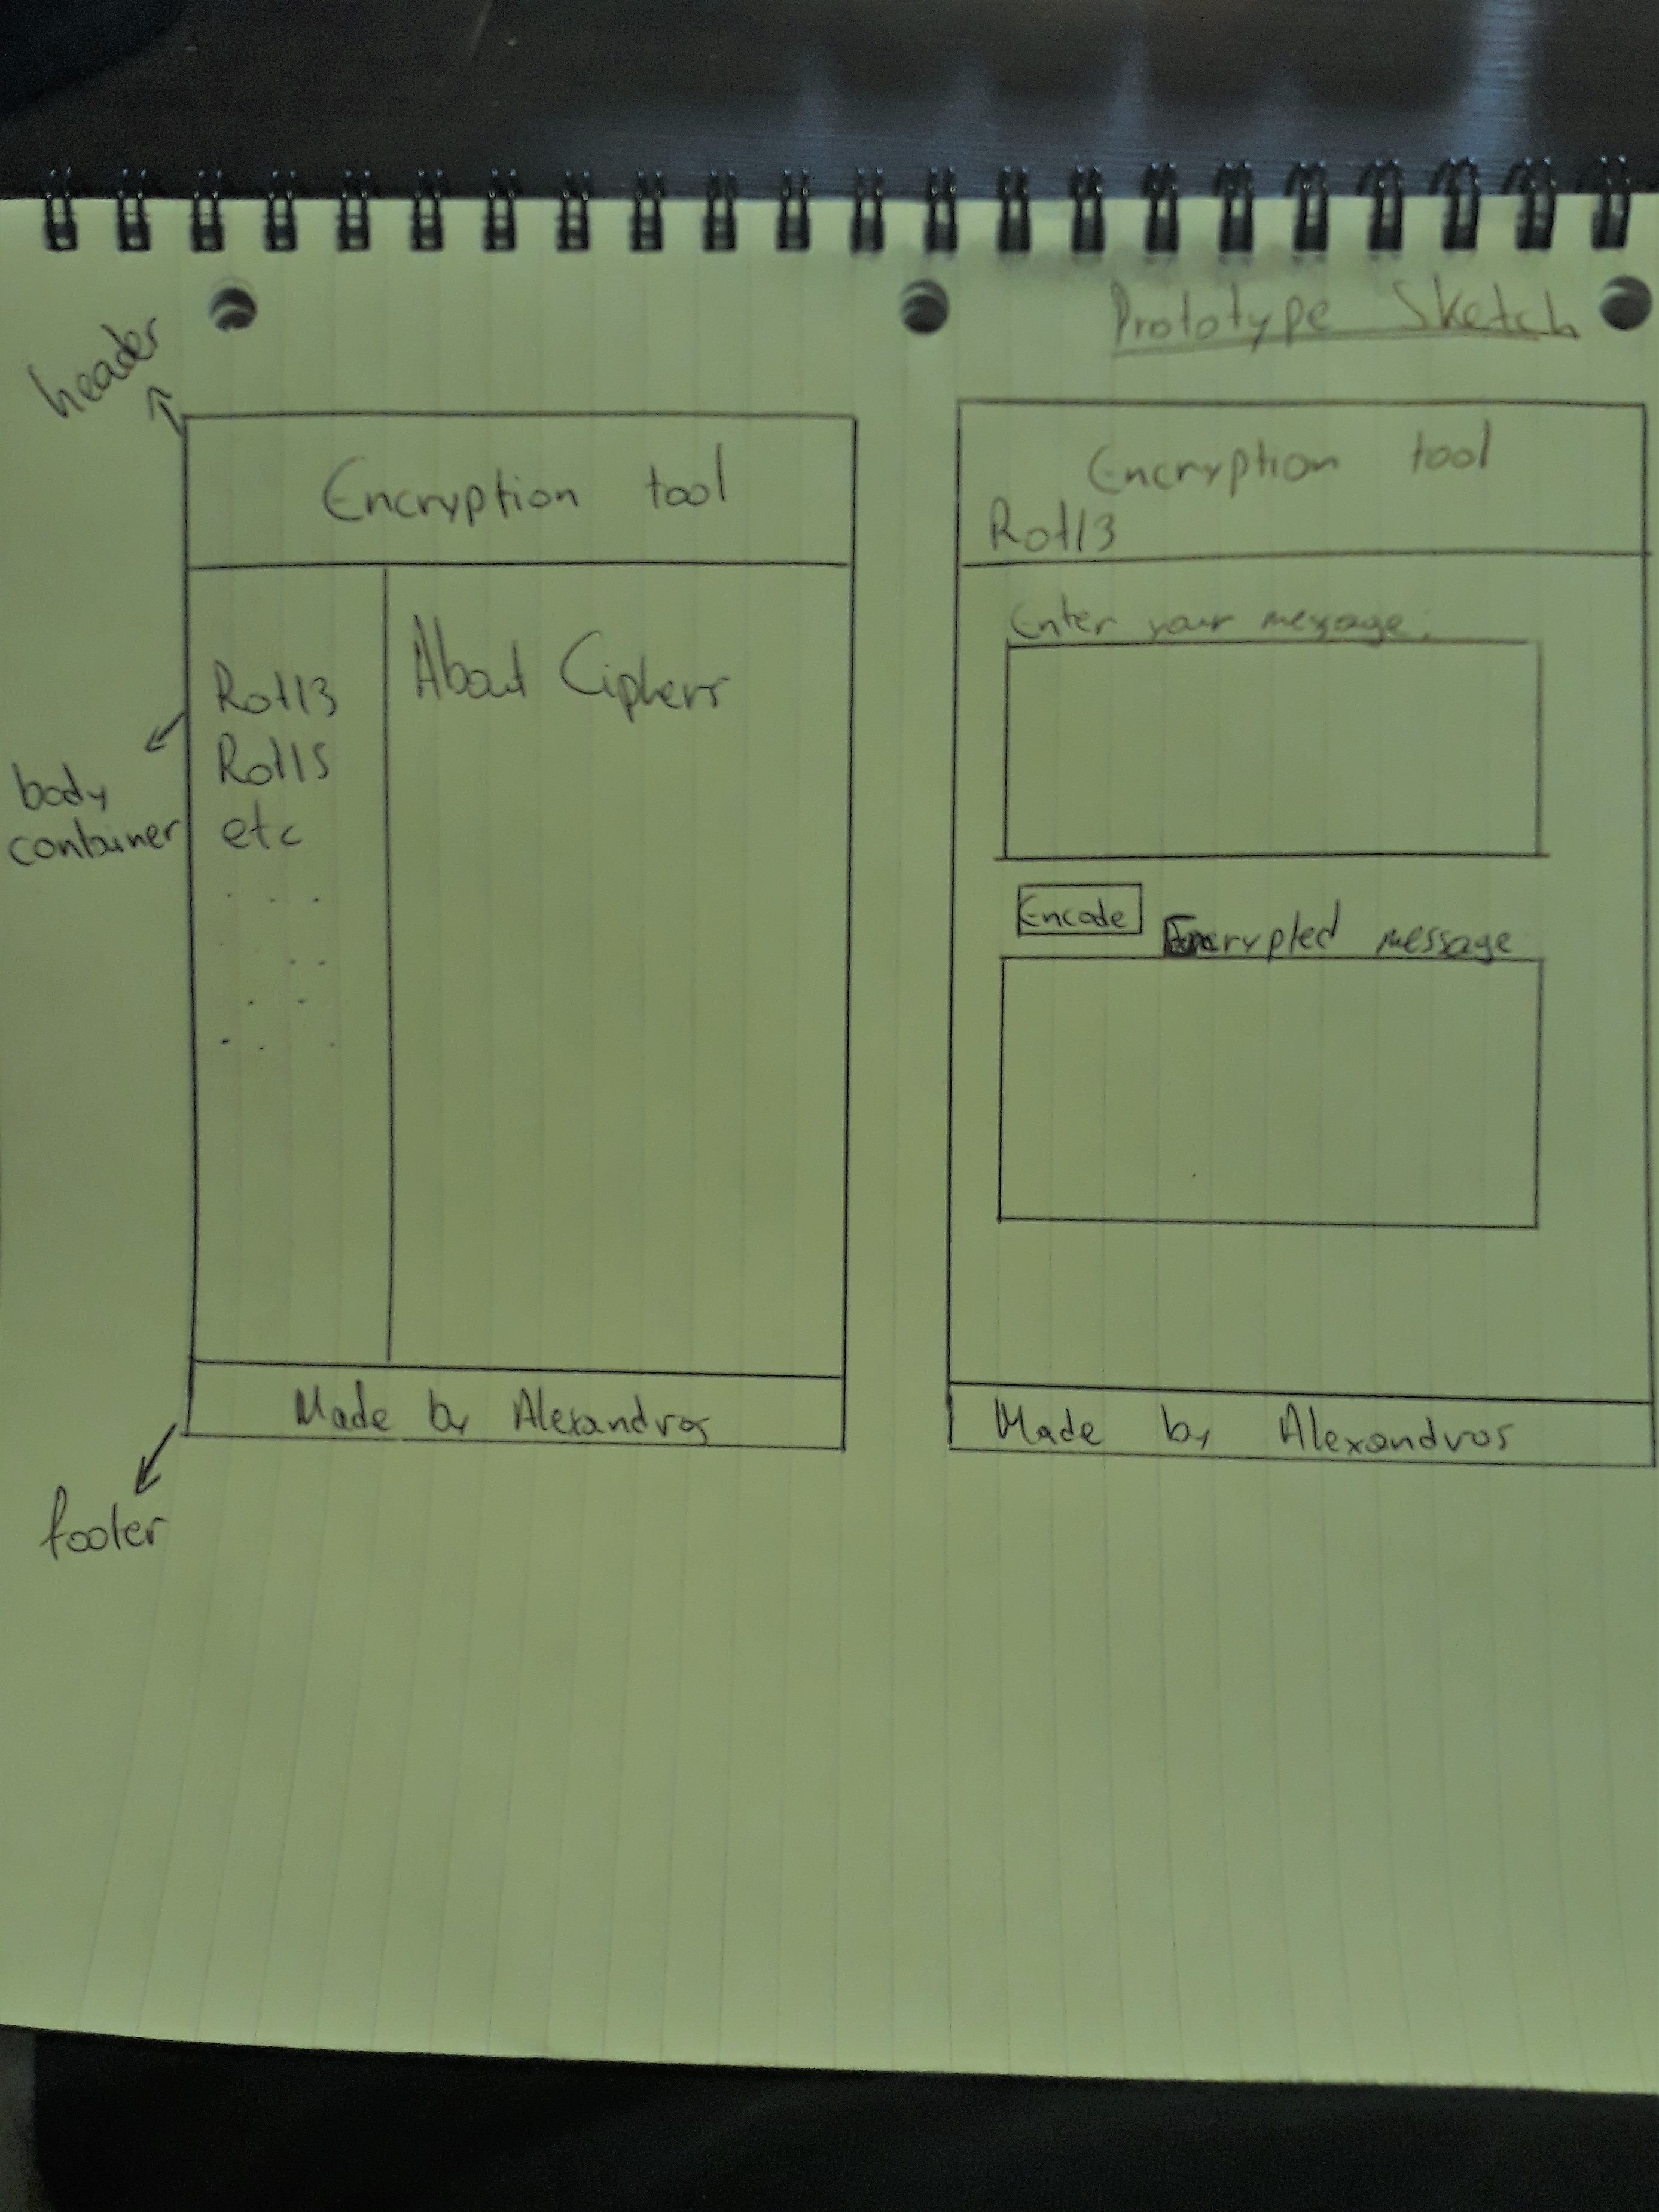 Prototype Sketch
header
Encryption tool
Rot13
Rot15
etc
About Ciphers
body
container
Made by Alexandros
footer
Encryption tool
Rot13
Enter your message:
Encode
Encrypted message
Made by Alexandros